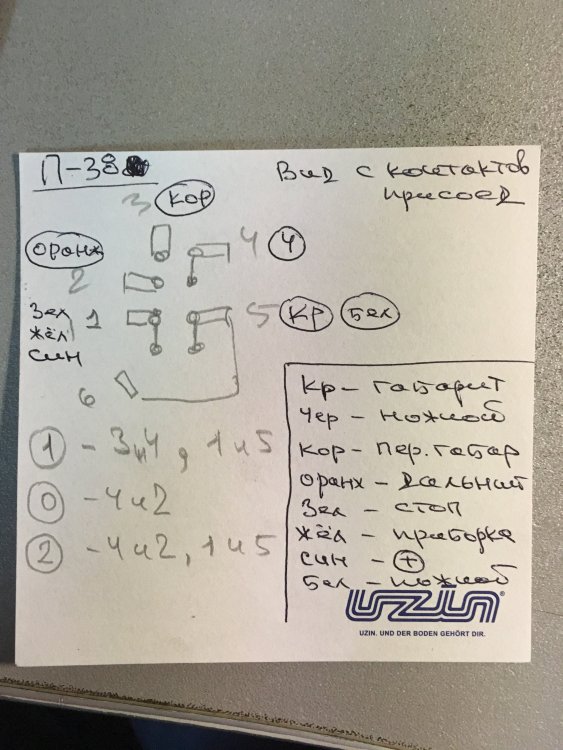 П-38
Вид с контактов
присоед
3 кор
оранж
4 Ч
2
Зел
жёл
син
1
5 Кр Бел
6
1 - 3и4, 1и5
0 - 4и2
2 - 4и2, 1и5
Кр - габарит
Чер - ножной
Кор - пер. габар
Оранж - Дальний
Зел - стоп
Жёл - приборка
син - +
Бел - ножной
uzin®
UZIN. UND DER BODEN GEHÖRT DIR.